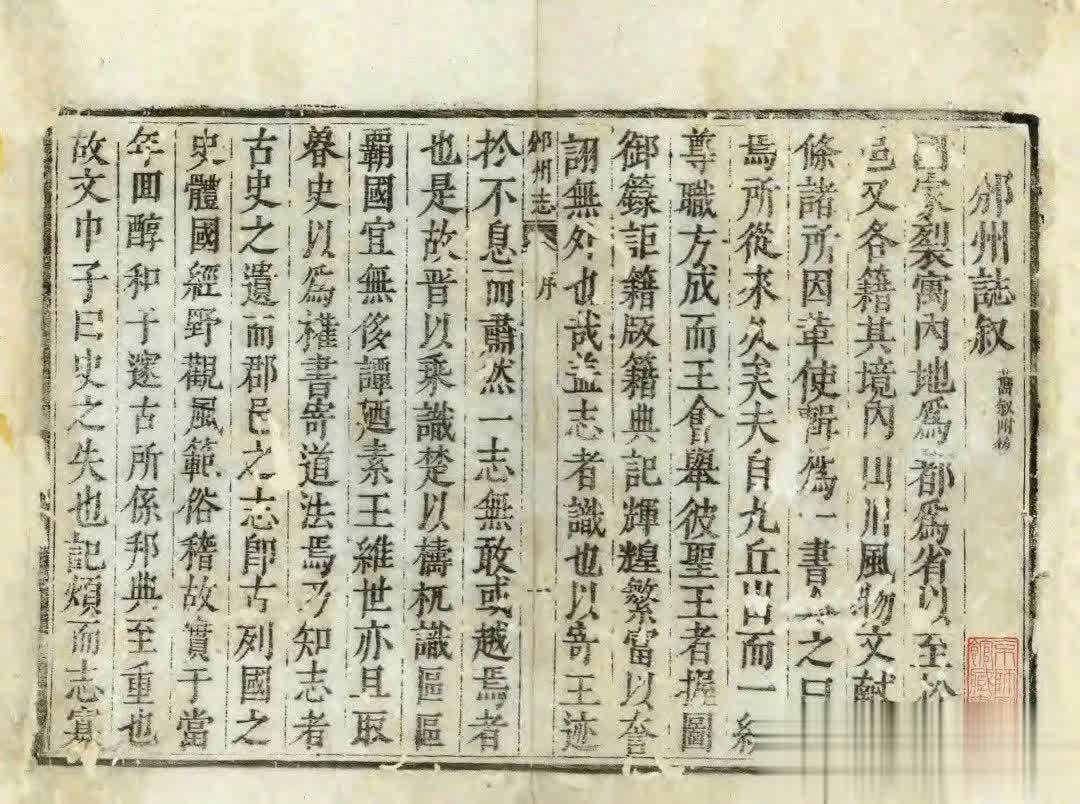 邠州誌叙 舊叙附後
國家裂寓內地爲都爲省以至扵
邑又各籍其境內山川風物文獻
條諸所因革使輯爲一書之曰
焉所從來久矣夫自九丘出而一統
尊職方成而王會舉彼聖王者握圖
御籙詎籍版籍典記輝煌繁富以夸
詡無外也哉盖志者識也以寄王迹
邠州志 序 一
扵不息而肅然一志無敢或越焉者
也是故晋以乘識楚以檮杌識區區
覇國宜無後譚廼素王維世亦且取
魯史以爲權書寄道法焉乃知志者
古史之遺而郡邑之志卽古列國之
史體國經野觀風範俗稽故實于當
年回醇和于邃古所係邦典至重也
故文中子曰史之失也記煩而志寡